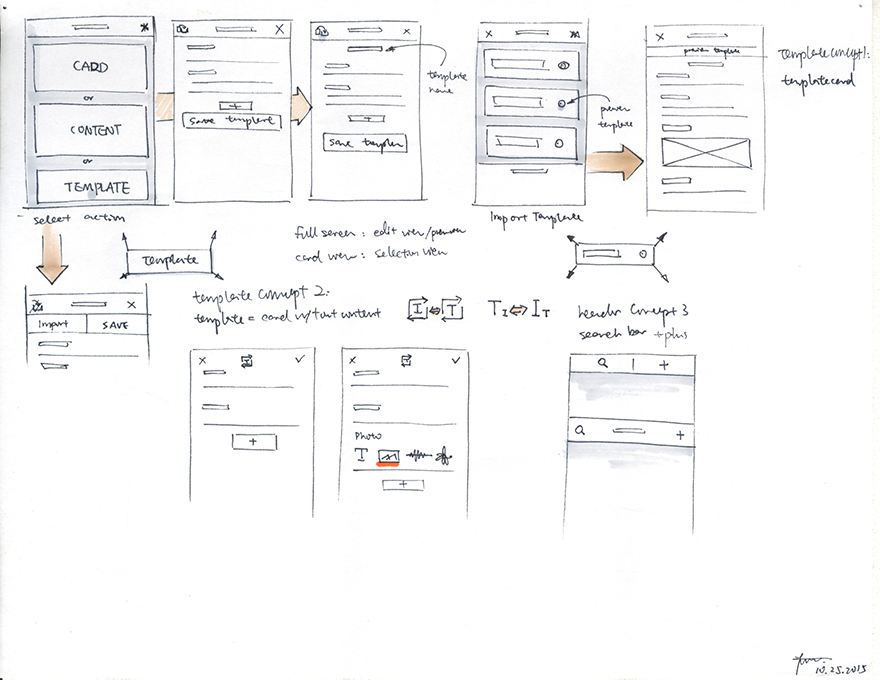 CARD
or
CONTENT
or
TEMPLATE
select action
save template
save templet
template
name
preview
template
Import Template
preview template
Template concept 1:
template card
full screen : edit view/preview
card view : selection view
Template
Import
SAVE
template concept 2:
template = card w/out content
I T
T I I T
header concept 3
search bar + plus
Photo
T
10.25.2015